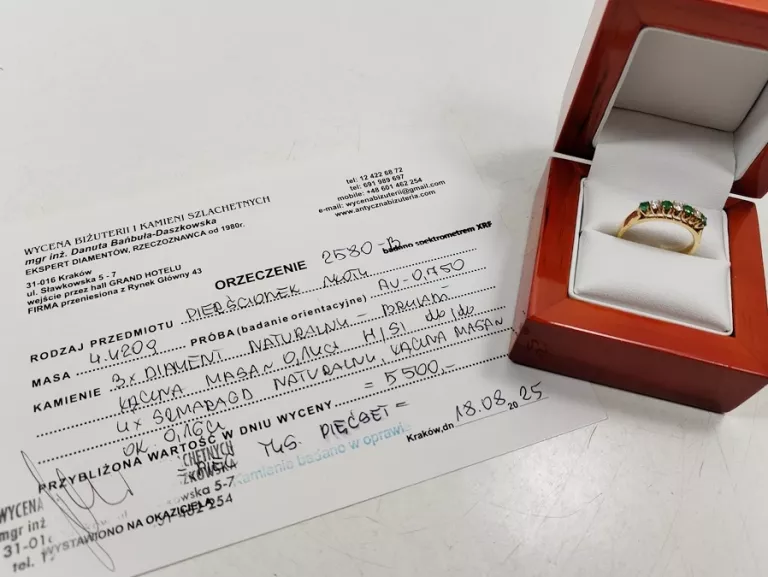 WYCENA BIŻUTERII I KAMIENI SZLACHETNYCH
mgr inż. Danuta Bańbuła-Daszkowska
EKSPERT DIAMENTÓW, RZECZOZNAWCA od 1980r.
31-016 Kraków
ul. Sławkowska 5 - 7
wejście przez hall GRAND HOTELU
FIRMA przeniesiona z Rynek Główny 43
tel: 12 422 68 72
tel: 691 989 697
mobile: +48 601 462 254
e-mail: wycenabizuterii@gmail.com
www.antycznabizuteria.com
ORZECZENIE 2580-B
badano spektrometrem XRF
RODZAJ PRZEDMIOTU PIERŚCIONEK ZŁOTY
MASA 4.420g PRÓBA (badanie orientacyjne) AU-0,750
KAMIENIE 3x DIAMENT NATURALNY - BRYLANT
ŁĄCZNA MASA ~ 0,14ct H/SI db/db
4x SZMARAGD NATURALNY, ŁĄCZNA MASA ~
OK. 0,16ct
PRZYBLIŻONA WARTOŚĆ W DNIU WYCENY = 5500,-
= PIĘĆ TYS. PIĘĆSET =
Kamienie badano w oprawie
Kraków, dn 18.08.2025
WYSTAWIONO NA OKAZICIELA
WYCENA
CHETNYCH
mgr inż
ZKOWSKA
31-01
wska 5-7
tel. 1